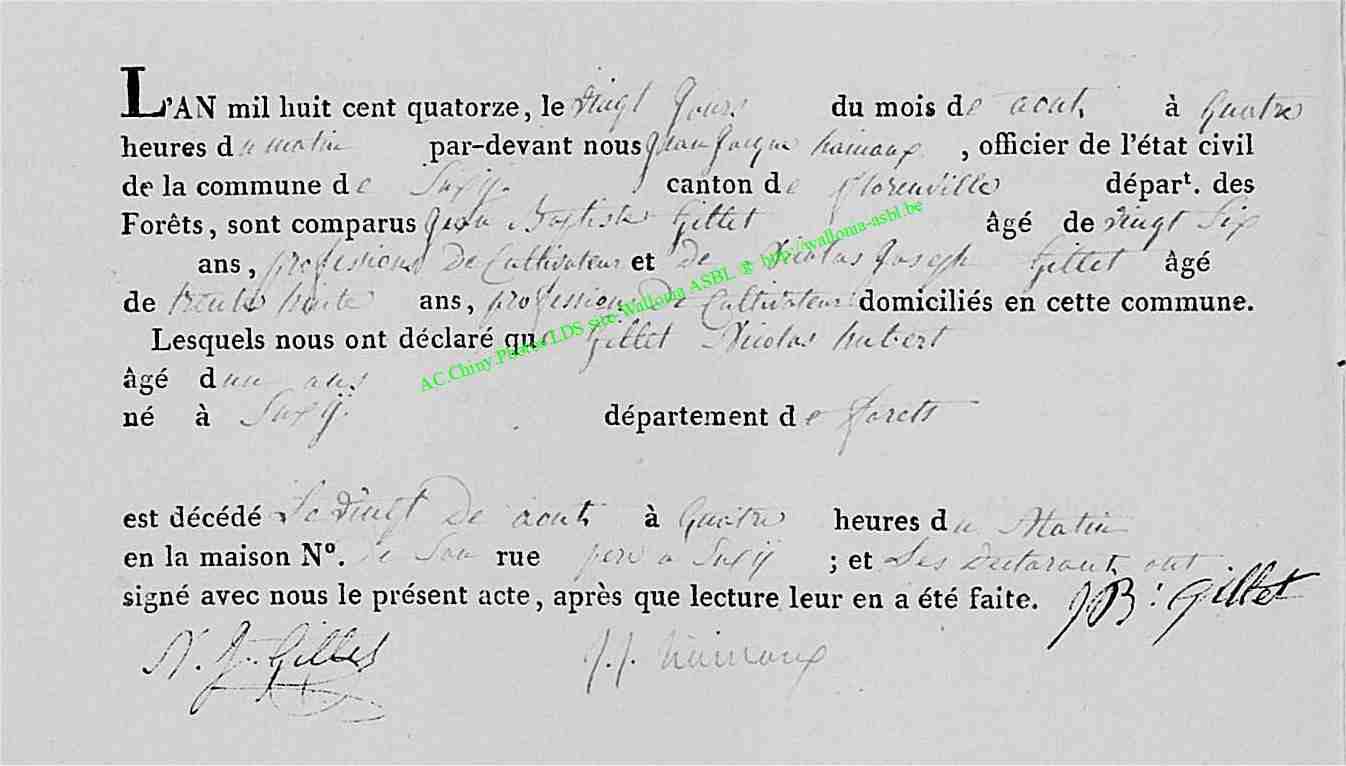 L'AN mil huit cent quatorze, le vingt jours du mois de aout à quatre
heures du matin par-devant nous Jean Jacque hainaux, officier de l'état civil
de la commune de Suxÿ canton de florenville départ. des
Forêts, sont comparus Jean Baptiste Gillet âgé de vingt Six
ans, profession De Cultivateur et De Nicolas Joseph Gillet âgé
de trente huite ans, profession De Cultivateur domiciliés en cette commune.
Lesquels nous ont déclaré que Gillet Nicolas hubert
âgé dun ans
né à Suxÿ. département de forets
est décédé Le vingt De aout à quatre heures du Matin
en la maison N°. de Son rue pere a Suxÿ ; et Les Declarant ont
signé avec nous le présent acte, après que lecture leur en a été faite. JB: Gillet
N. J. Gillet J. J. hainaux
AC.Chiny.Photos LDS site Wallonia ASBL @ http://wallonia-asbl.be